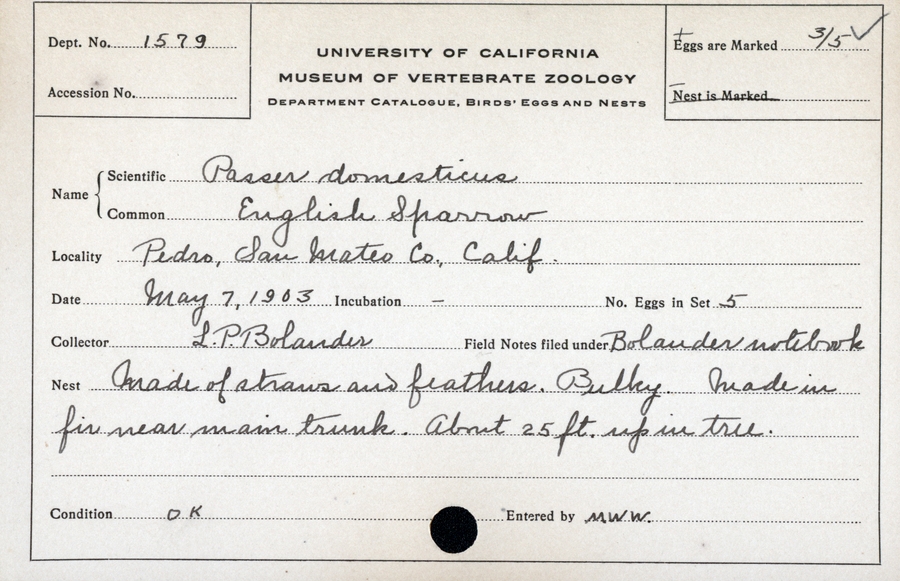 Dept. No. 1579
Accession No.
UNIVERSITY OF CALIFORNIA
MUSEUM OF VERTEBRATE ZOOLOGY
DEPARTMENT CATALOGUE, BIRDS' EGGS AND NESTS
Eggs are Marked 3/5 ✓
Nest is Marked
Name
Scientific Passer domesticus
Common English Sparrow
Locality Pedro, San Mateo Co., Calif.
Date May 7, 1903 Incubation – No. Eggs in Set 5
Collector L.P. Bolander Field Notes filed under Bolander notebook
Nest Made of straws and feathers. Bulky. Made in
fir near main trunk. About 25 ft. up in tree.
Condition OK Entered by MWW.